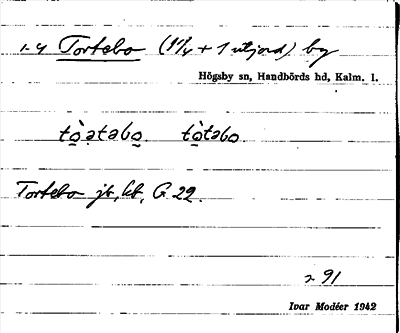 1-4 Tortebo (1 1/4 + 1 utjord) by
Högsby sn, Handbörds hd, Kalm. l.
tò̠atabo̠. tò̠tabo
Tortebo jb, kb, G 22.
2 91
Ivar Modéer 1942